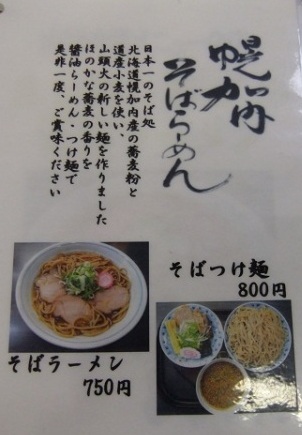 幌加内
そばらーめん
日本一のそば処
北海道幌加内産の蕎麦粉と
道産小麦を使い、
山頭火の新しい麺を作りました
ほのかな蕎麦の香りを
醤油らーめん・つけ麺で
是非一度、ご賞味ください
そばつけ麺
800円
そばラーメン
750円